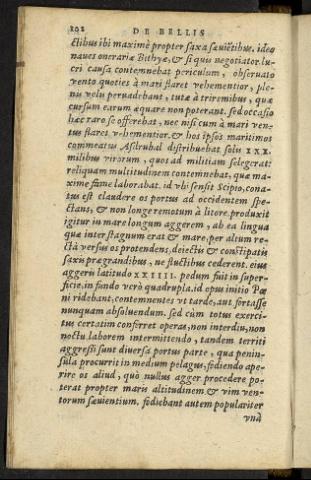 202 DE BELLIS
ctibus ibi maximè propter saxa sæuiētibus. ideo
naues onerariæ Bithyæ, & si quis negotiator lu-
cri causa contemnebat periculum, obseruato
vento quoties à mari flaret vehementior, ple-
nis velis peruadebant, tutæ à triremibus, quæ
cursum earum æquare non poterant. sed occasio
hæc raro se offerebat, nec nisi cum à mari ven-
tus flaret vehementior. & hos ipsos maritimos
commeatus Asdrubal distribuebat solu XXX.
milibus virorum, quos ad militiam selegerat:
reliquam multitudinem contemnebat, quæ ma-
ximè fame laborabat. id vbi sensit Scipio, cona-
tus est claudere os portus ad occidentem spe-
ctans, & non longe remotum à litore. produxit
igitur in mare longum aggerem, ab ea lingua
quæ inter stagnum erat & mare, per altum re-
ctà versus os protendens, deiectis & constipatis
saxis prægrandibus, ne fluctibus cederent. eius
aggeris latitudo XXIIII. pedum fuit in super-
ficie, in fundo verò quadrupla. id opus initio Pœ
ni ridebant, contemnentes vt tarde, aut fortasse
nunquam absoluendum. sed cùm totus exerci-
tus certatim conferret operas, non interdiu, non
noctu laborem intermittendo, tandem territi
aggressi sunt diuersa portus parte, qua penin-
sula procurrit in medium pelagus, fodiendo ape-
rire os aliud, quò nullus agger procedere po-
terat propter maris altitudinem & vim ven-
torum sæuientium. fodiebant autem populariter
vnà